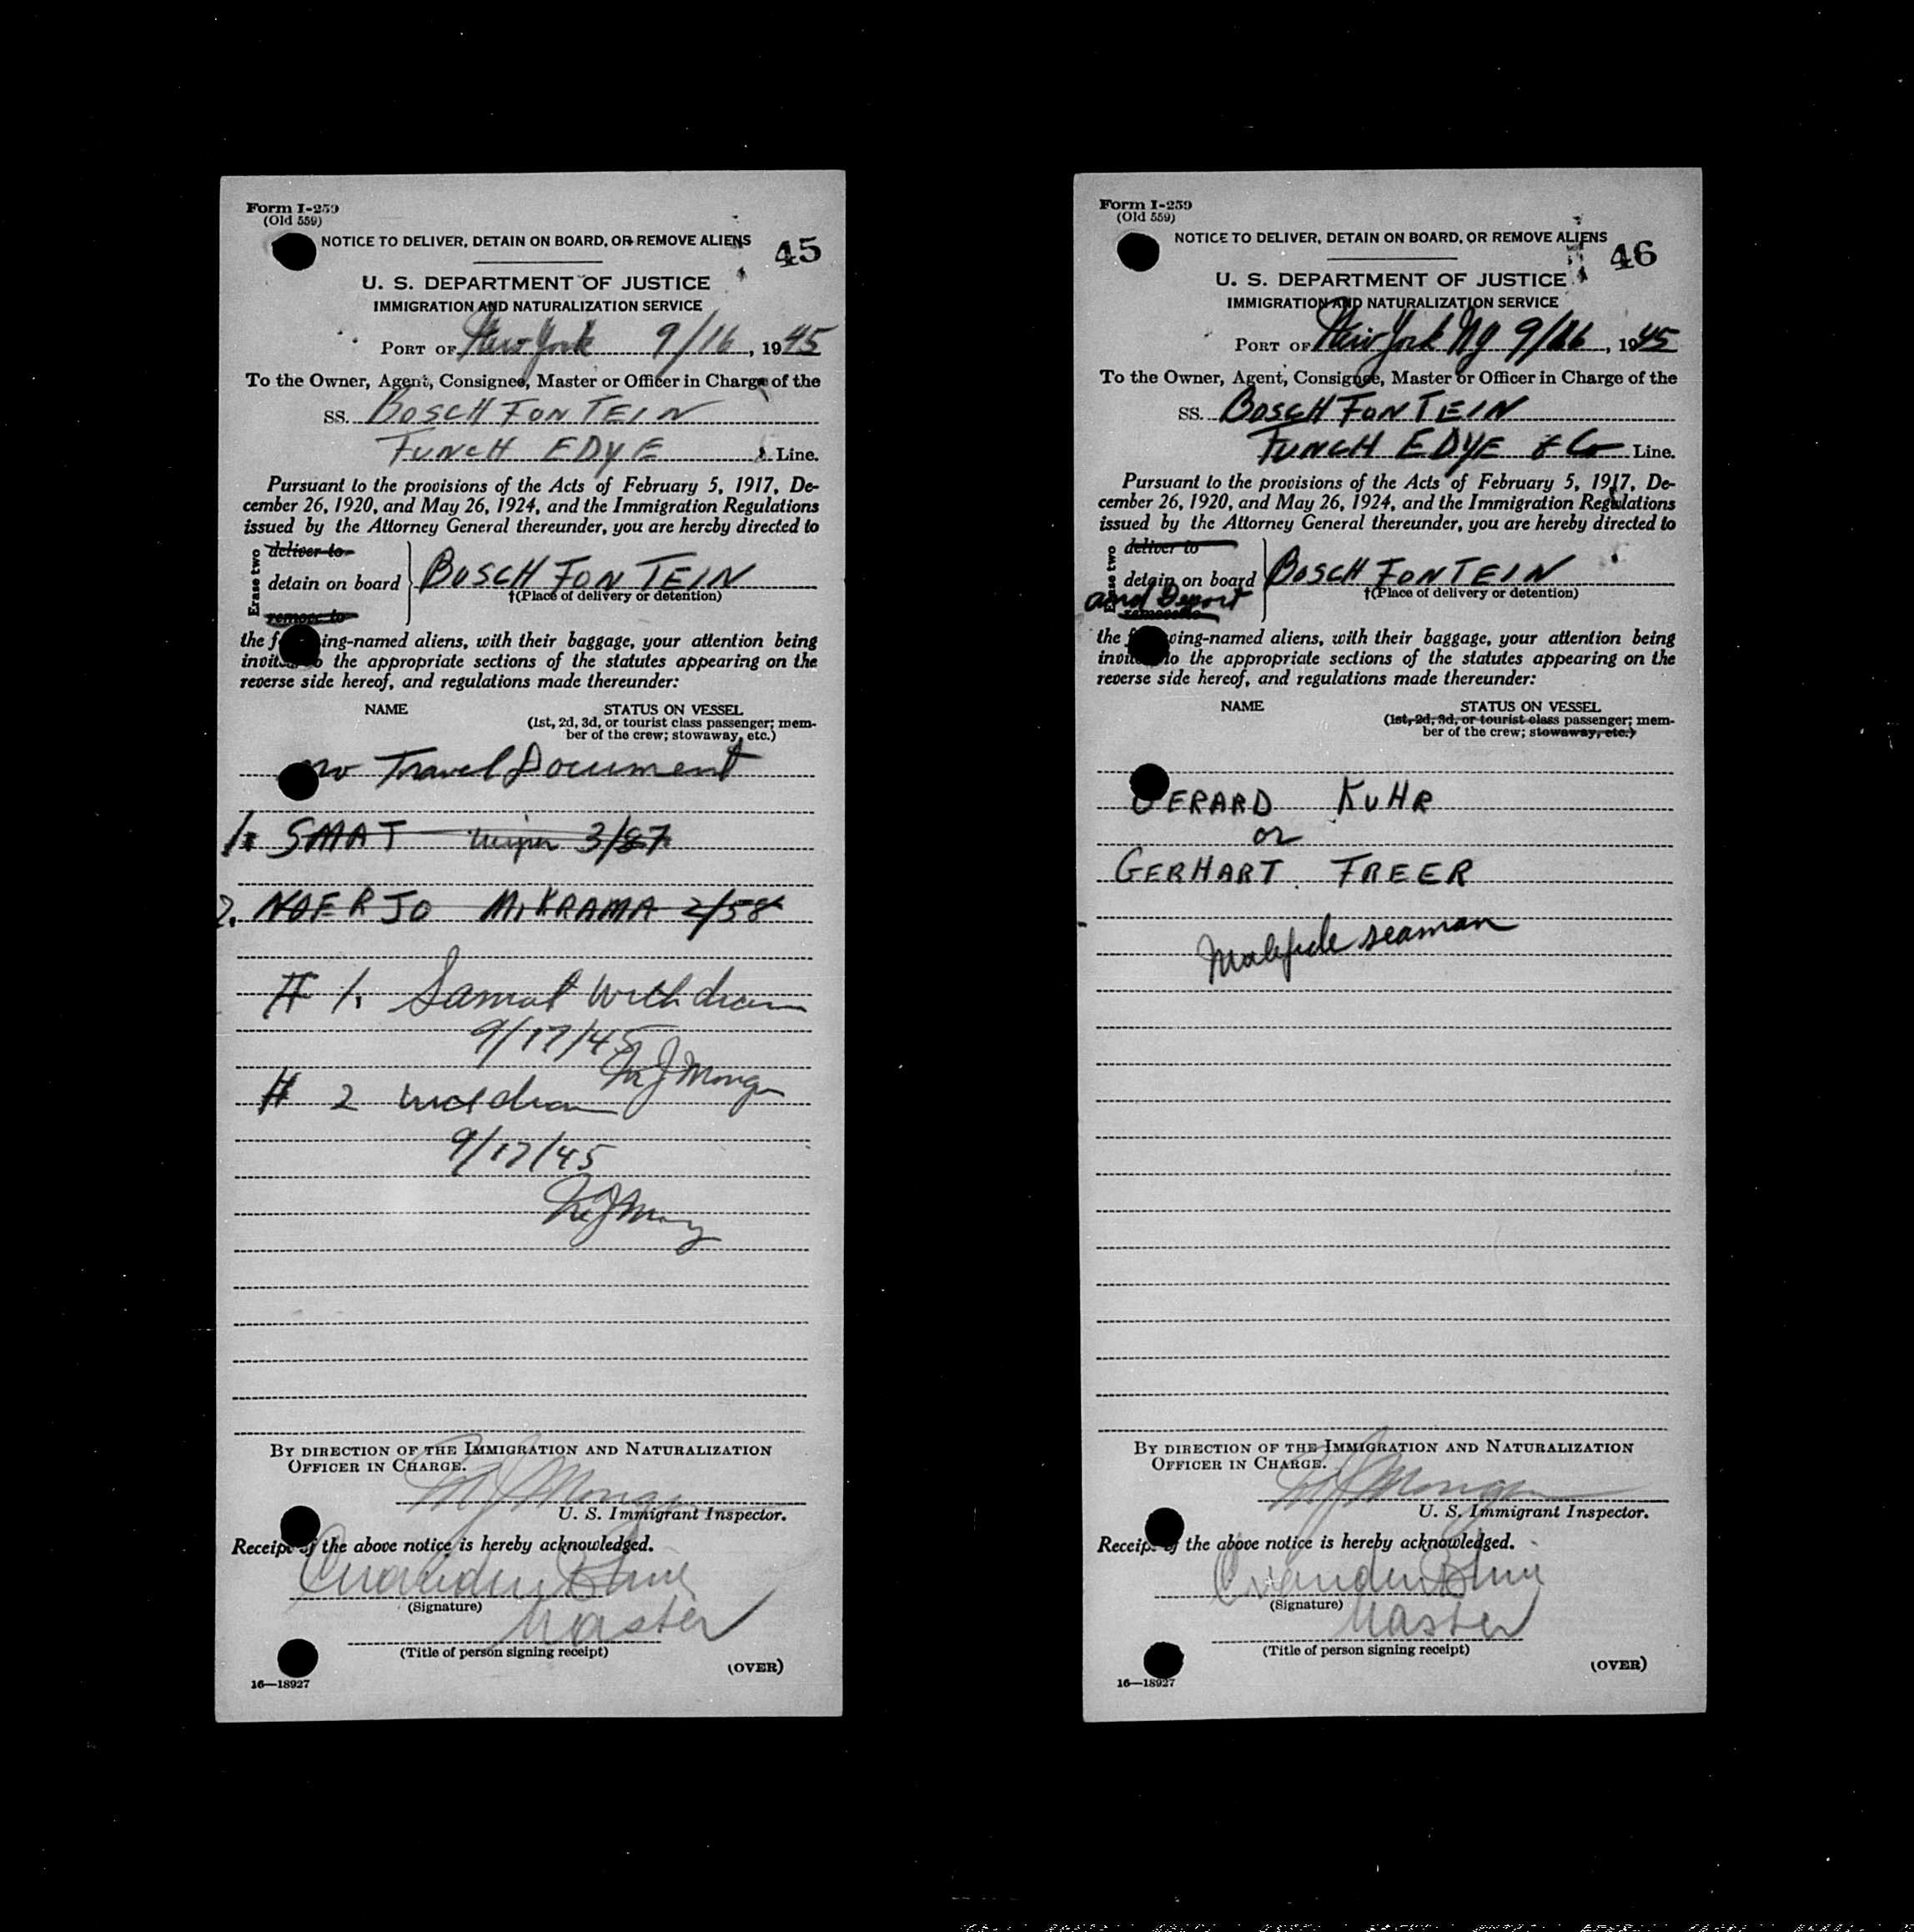 Form I-259
(Old 559)
NOTICE TO DELIVER, DETAIN ON BOARD, OR REMOVE ALIENS
45
U. S. DEPARTMENT OF JUSTICE
IMMIGRATION AND NATURALIZATION SERVICE
PORT OF New York 9/16, 1945
To the Owner, Agent, Consignee, Master or Officer in Charge of the
SS. BOSCH FONTEIN
FUNCH EDYE Line.
Pursuant to the provisions of the Acts of February 5, 1917, De-
cember 26, 1920, and May 26, 1924, and the Immigration Regulations
issued by the Attorney General thereunder, you are hereby directed to
Erase two
deliver to
detain on board BOSCH FONTEIN
remove to
†(Place of delivery or detention)
the f ing-named aliens, with their baggage, your attention being
invit o the appropriate sections of the statutes appearing on the
reverse side hereof, and regulations made thereunder:
NAME STATUS ON VESSEL
(1st, 2d, 3d, or tourist class passenger; mem-
ber of the crew; stowaway, etc.)
no Travel Document
1. SMAT wiper 3/87
2. NOERJO MIKRAMA 2/58
# 1. Samat withdrawn
9/17/45
# 2 withdrawn
9/17/45
BY DIRECTION OF THE IMMIGRATION AND NATURALIZATION
OFFICER IN CHARGE.
U. S. Immigrant Inspector.
Receipt of the above notice is hereby acknowledged.
(Signature)
Master
(Title of person signing receipt)
(OVER)
16—18927
Form I-259
(Old 559)
NOTICE TO DELIVER, DETAIN ON BOARD, OR REMOVE ALIENS
46
U. S. DEPARTMENT OF JUSTICE
IMMIGRATION AND NATURALIZATION SERVICE
PORT OF New York NY 9/16, 1945
To the Owner, Agent, Consignee, Master or Officer in Charge of the
SS. BOSCH FONTEIN
FUNCH EDYE & Co Line.
Pursuant to the provisions of the Acts of February 5, 1917, De-
cember 26, 1920, and May 26, 1924, and the Immigration Regulations
issued by the Attorney General thereunder, you are hereby directed to
Erase two
deliver to
detain on board BOSCH FONTEIN
and Deport
remove to
†(Place of delivery or detention)
the f wing-named aliens, with their baggage, your attention being
invite to the appropriate sections of the statutes appearing on the
reverse side hereof, and regulations made thereunder:
NAME STATUS ON VESSEL
(1st, 2d, 3d, or tourist class passenger; mem-
ber of the crew; stowaway, etc.)
GERARD KUHR
or
GERHART FREER
Malafide seaman
BY DIRECTION OF THE IMMIGRATION AND NATURALIZATION
OFFICER IN CHARGE.
U. S. Immigrant Inspector.
Receipt of the above notice is hereby acknowledged.
(Signature)
Master
(Title of person signing receipt)
(OVER)
16—18927